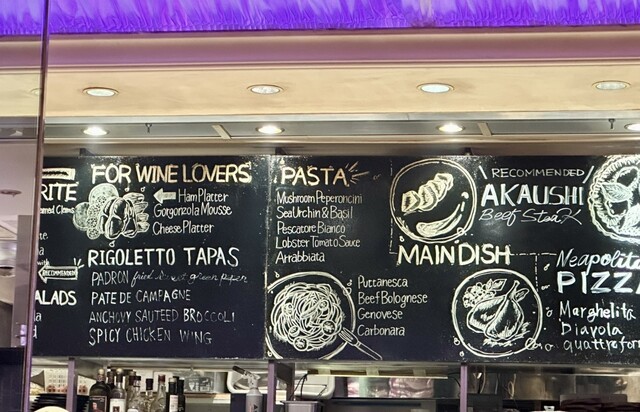 RITE
ALADS
RECOMMENDED
FOR WINE LOVERS
Ham Platter
Gorgonzola Mousse
Cheese Platter
RIGOLETTO TAPAS
PADRON fried sweet green pepper
PATE DE CAMPAGNE
ANCHOVY SAUTEED BROCCOLI
SPICY CHICKEN WING
PASTA
Mushroom Peperoncini
Sea Urchin & Basil
Pescatore Bianco
Lobster Tomato Sauce
Arrabbiata
Puttanesca
Beef Bolognese
Genovese
Carbonara
RECOMMENDED
AKAUSHI
Beef Steak
MAIN DISH
Neapolita
PIZZ
Marghelita
Diavola
quattro for